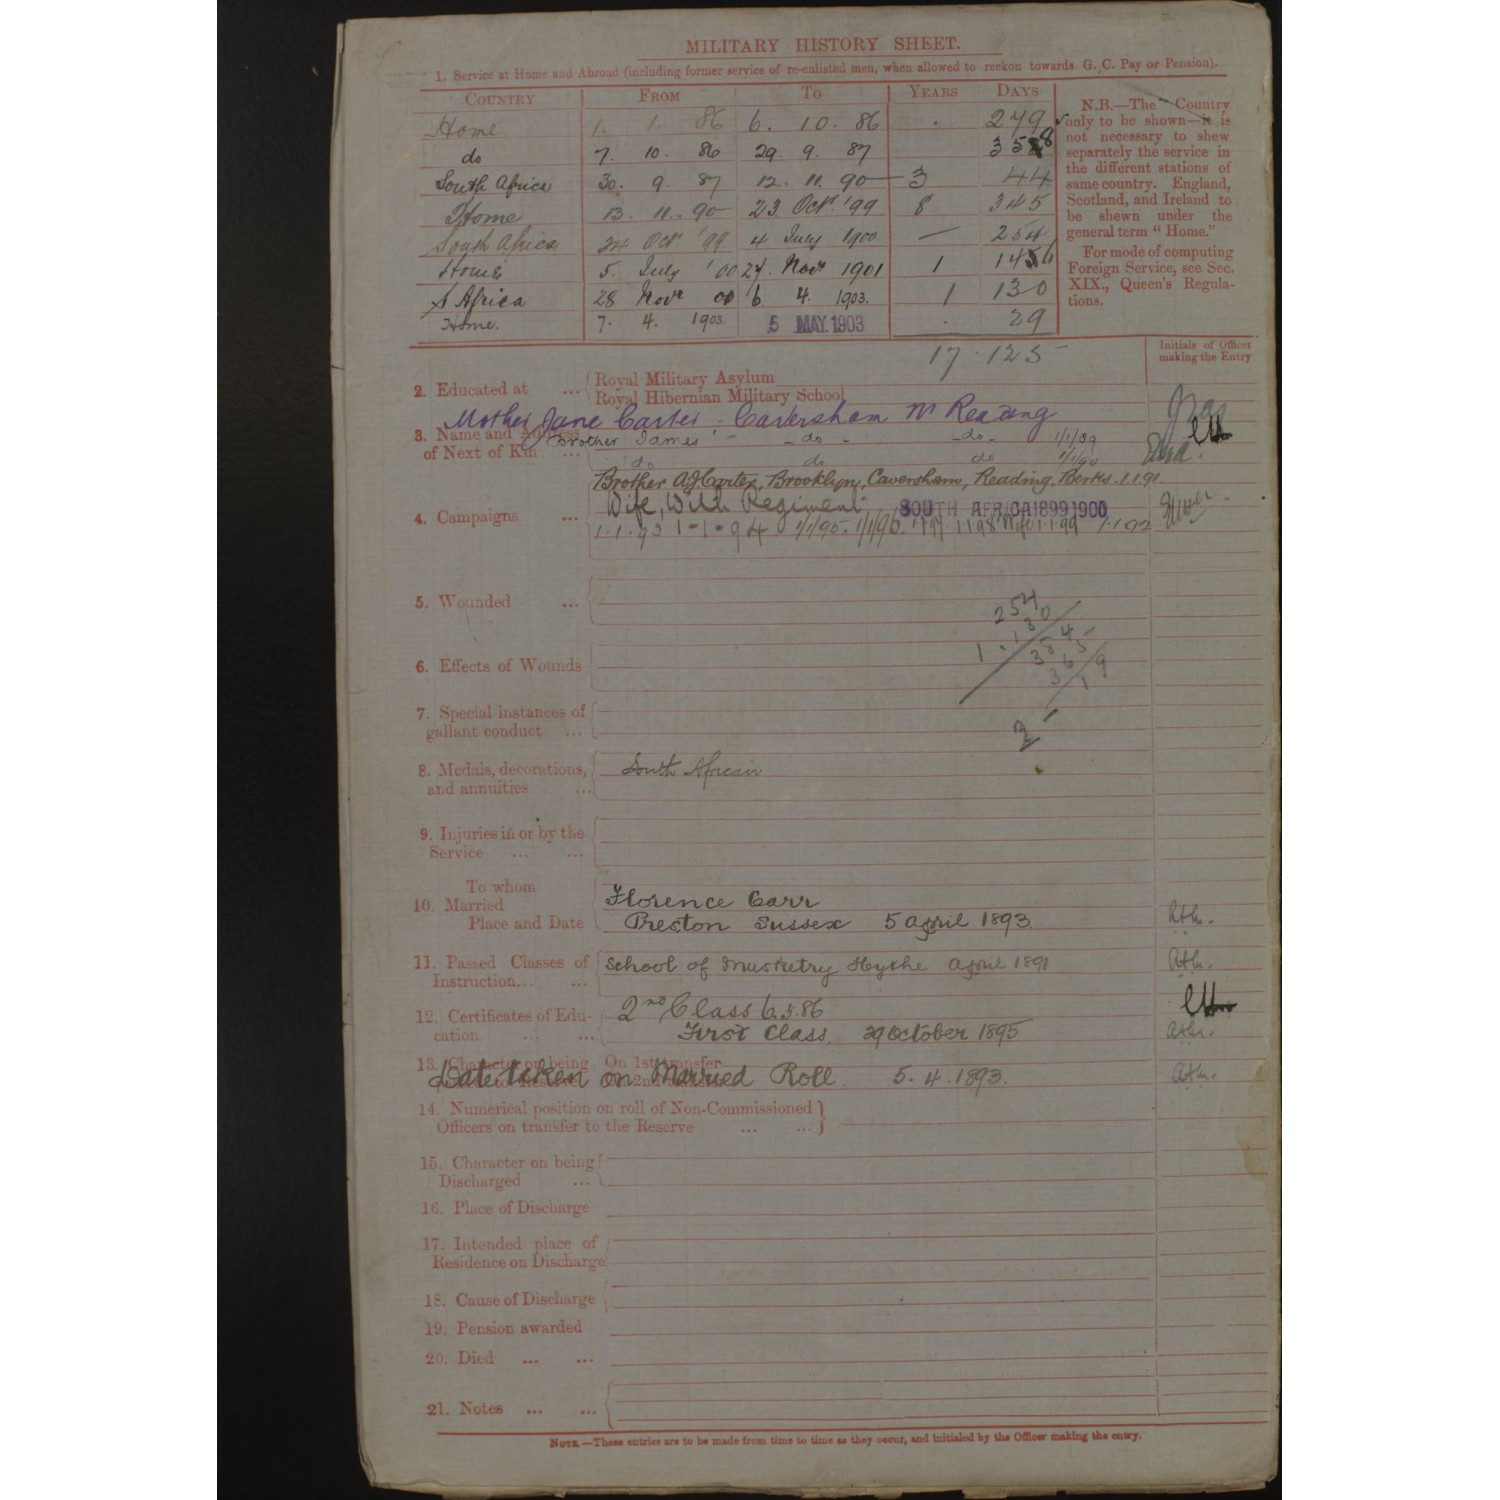 MILITARY HISTORY SHEET.
1. Service at Home and Abroad (including former service of re-enlisted men, when allowed to reckon towards G. C. Pay or Pension).
COUNTRY FROM TO YEARS DAYS
Home 1. 1. 86 6. 10. 86 . 279
do 7. 10. 86 29. 9. 87 358
South Africa 30. 9. 87 12. 11. 90 3 44
Home 13. 11. 90 23 Oct. '99 8 345
South Africa 24 Oct '99 4 July 1900 — 254
Home 5. July '00 27 Novr 1901 1 146
S Africa 28 Novr 01 6. 4. 1903. 1 130
Home. 7. 4. 1903 5 MAY 1903 . 29
17 · 125
N.B.—The Country
only to be shown—it is
not necessary to shew
separately the service in
the different stations of
same country. England,
Scotland, and Ireland to
be shewn under the
general term "Home."
For mode of computing
Foreign Service, see Sec.
XIX., Queen's Regula-
tions.
Initials of Officer
making the Entry
2. Educated at ... Royal Military Asylum
Royal Hibernian Military School
Mother Jane Carter. Caversham Nr Reading
3. Name and Address
of Next of Kin ...
Brother James - do - - do - 1/1/89
do do do 1/1/90
Brother A J Carter, Brooklyn, Caversham, Reading, Berks. 1.1.91.
Wife, With Regiment
4. Campaigns ... SOUTH AFRICA 1899 1900
1.1.93 1-1-94 1/1/95. 1/1/96. 1/1/97 1.1.98 Wife 1.1.99 1.1.92
5. Wounded ...
254
130
384
365
1. 19
2
6. Effects of Wounds
7. Special instances of
gallant conduct ...
8. Medals, decorations,
and annuities ... South African
9. Injuries in or by the
Service ... ...
To whom
10. Married
Place and Date
Florence Carr
Preston Sussex 5 April 1893
11. Passed Classes of
Instruction... ...
School of Musketry Hythe April 1891
12. Certificates of Edu-
cation ... ...
2nd Class 6.5.86
First Class. 29 October 1895
13. Character on being On 1st transfer
Date taken on Married Roll. 5. 4. 1893.
14. Numerical position on roll of Non-Commissioned
Officers on transfer to the Reserve ... ...
15. Character on being
Discharged ...
16. Place of Discharge
17. Intended place of
Residence on Discharge
18. Cause of Discharge
19. Pension awarded
20. Died ... ...
21. Notes ... ...
NOTE.—These entries are to be made from time to time as they occur, and initialed by the Officer making the entry.